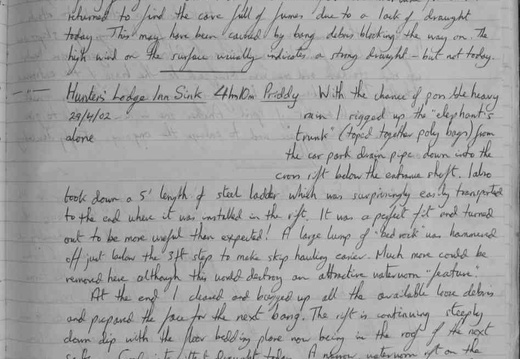 returned to find the cave full of fumes due to a lack of draught
today. This may have been caused by bang debris blocking the way on. The
high wind on the surface usually indicates a strong draught - but not today.
Hunters' Lodge Inn Sink 4Hrs10m Priddy With the chance of the heavy
29/4/02 rain I rigged up the "elephant's
alone trunk" (taped together poly bags) from
the car park drain pipe down into the
cross rift below the entrance shaft. I also
took down a 5' length of steel ladder which was surprisingly easily transported
to the end where it was installed in the rift. It was a perfect fit and turned
out to be more useful than expected! A large lump of "bed rock" was hammered
off just below the 3ft step to make skip hauling easier. Much more could be
removed here although this would destroy an attractive waterworn "feature".
At the end I cleared and bagged up all the available loose debris
and prepared the face for the next bang. The rift is continuing steeply
down dip with the floor bedding plane now being in the roof of the next
draught today. A narrow waterworn rift on the